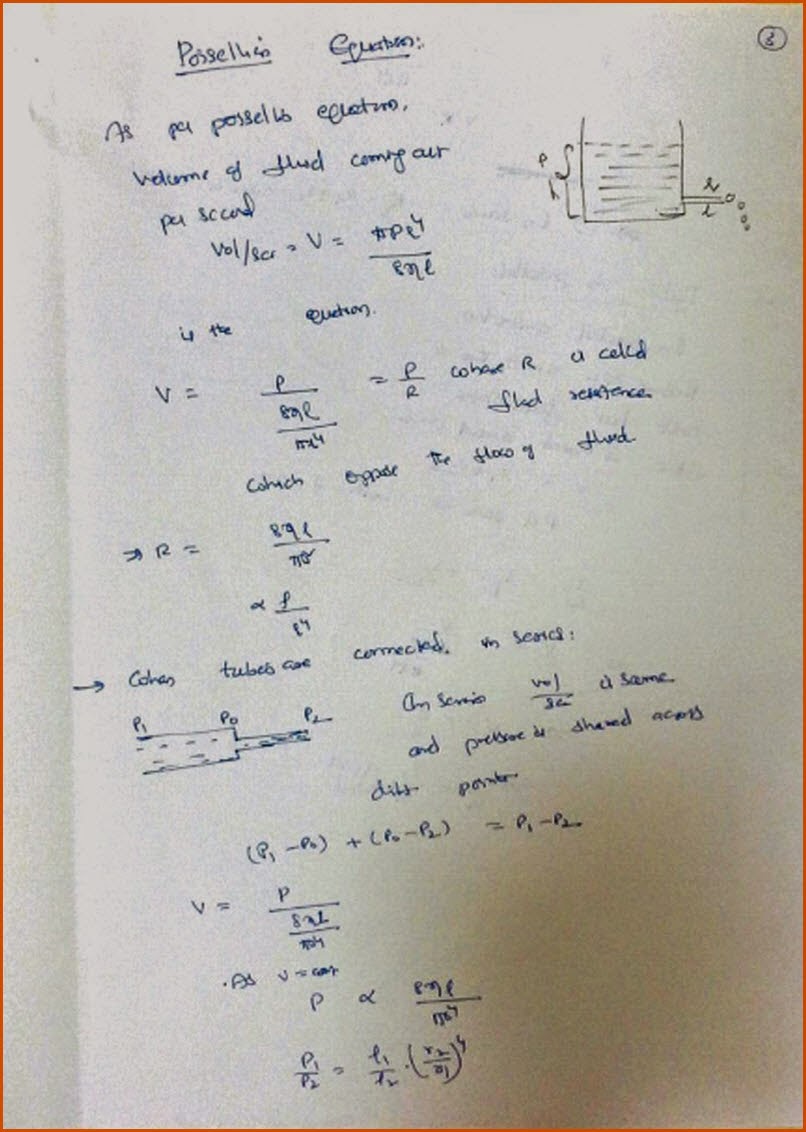 3
Possellis Equation:
As per possellis equation,
volume of fluid coming out
per second
Vol/sec = V = πPr⁴/8ηl
P
h
r
l
is the equation.
V = P/(8ηl/πr⁴) = P/R where R is called
fluid resistence
which oppose the flow of fluid.
⇒ R = 8ηl/πr⁴
∝ l/r⁴
→ When tubes are connected in series:
P₁ P₀ P₂
In series vol/sec is same
and pressure is shared across
points
(P₁ - P₀) + (P₀ - P₂) = P₁ - P₂
V = P/(8ηl/πr⁴)
. As V = con
P ∝ 8ηl/πr⁴
P₁/P₂ = l₁/l₂ . (r₂/r₁)⁴